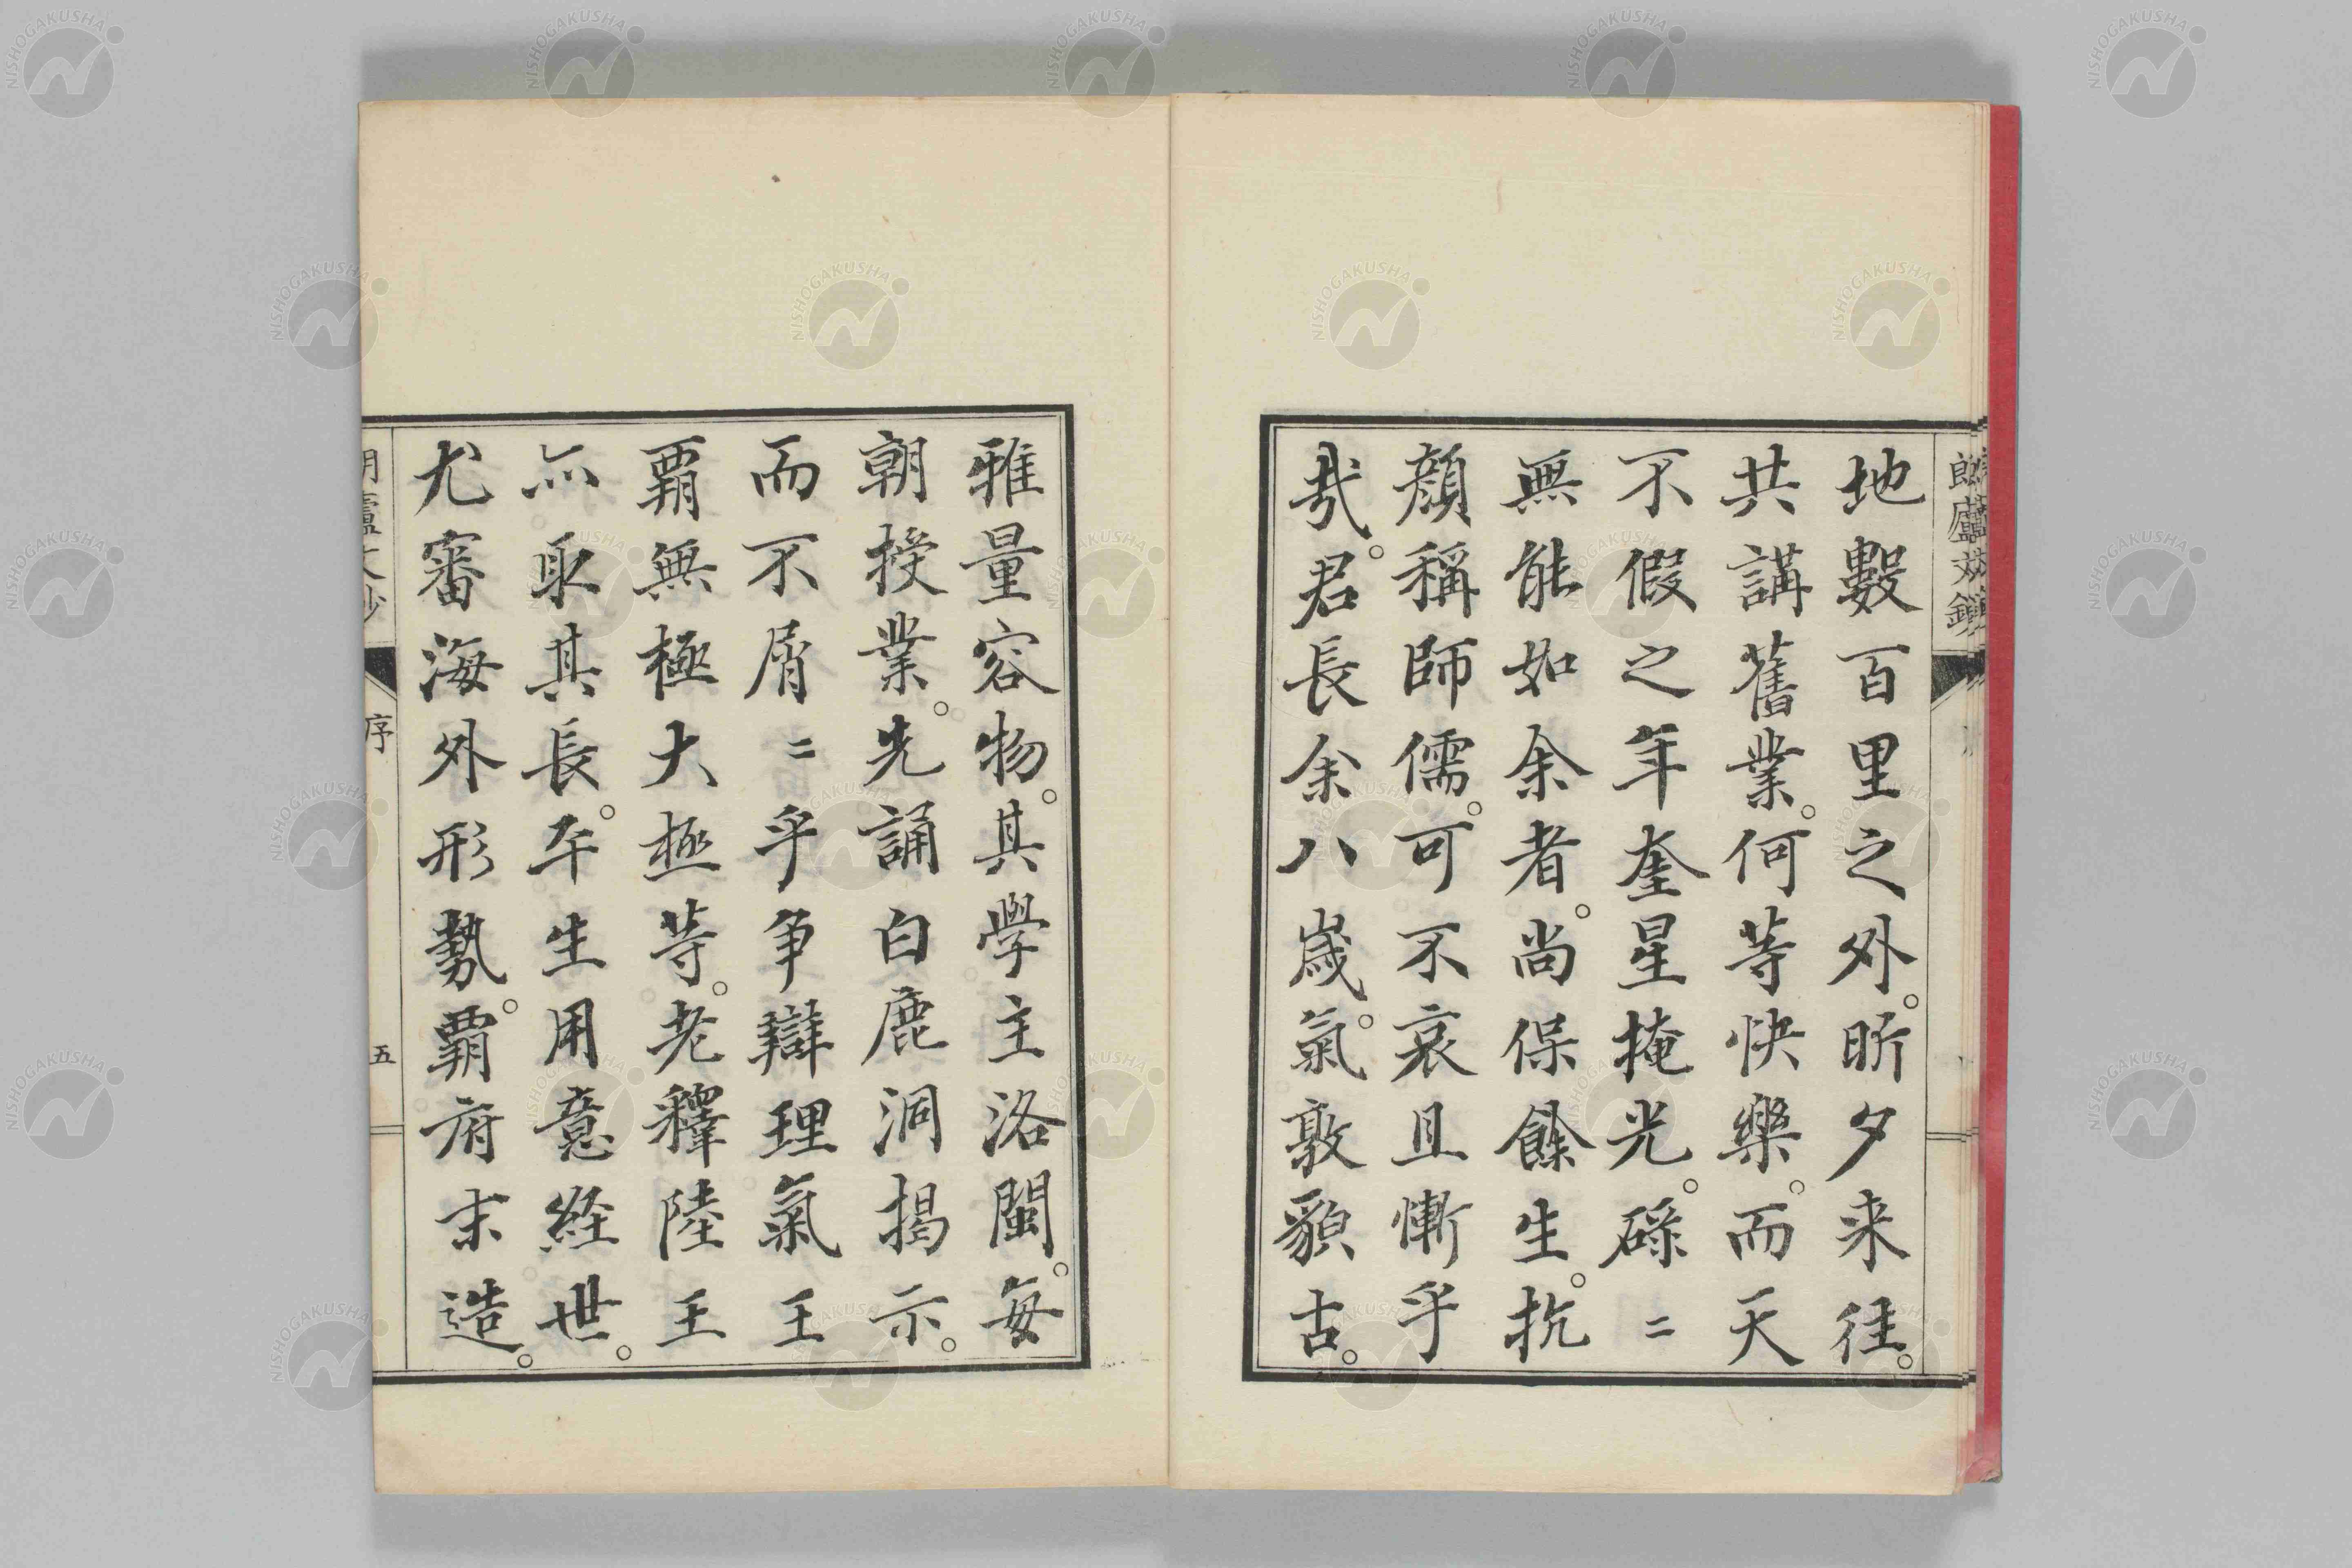 地數百里之外。昕夕来往。
共講舊業。何等快樂。而天
不假之年奎星掩光。碌〻
無能如余者。尚保餘生。抗
顔稱師儒。可不哀且慚乎
哉。君長余八歳。氣敦貌古。
雅量容物。其學主洛閩。每
朝授業。先誦白鹿洞掲示。
而不屑〻乎争辯理氣王
覇無極大極等。老釋陸王
亦取其長。平生用意経世。
尤審海外形勢。覇府末造。
朗廬文鈔
序
五
NISHOGAKUSHA